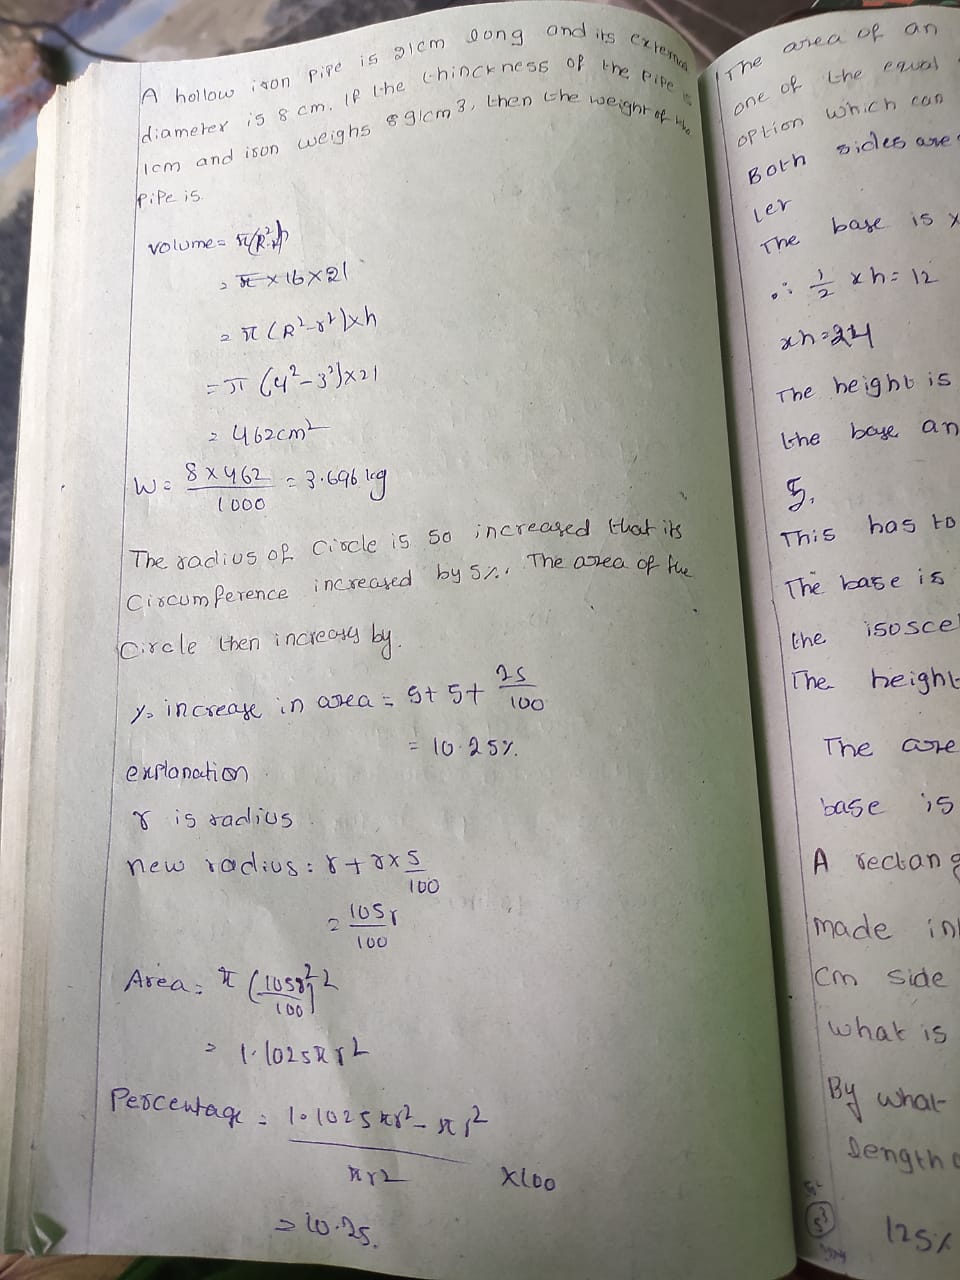 A hollow iron pipe is 21cm long and its external
diameter is 8 cm. If the thinckness of the pipe is
1cm and iron weighs 8g1cm3, then the weight of the
pipe is.
volume=
= π×16×21
= π(R²-r²)×h
=π(4²-3²)×21
= 462cm²
W= 8×462/1000 = 3.696 kg
The radius of circle is so increased that its
Circumference increased by 5%. The area of the
Circle then increasy by.
% increase in area = 5+5+ 25/100
= 10.25%.
explanation
r is radius
new radius: r+r×5/100
= 105r/100
Area= π (105r/100)² 2
= 1.1025πr2
Percentage = 1.1025πr²-πr²/πr2 ×100
= 10.25.
The area of an
one of the equal
option which can
Both sides are
Ler
The base is x
∴ 1/2 xh=12
xh=24
The height is
the base an
5.
This has to
The base is
the isoscel
The height
The are
base is
A rectang
made in
Cm side
what is
By what
length
125%